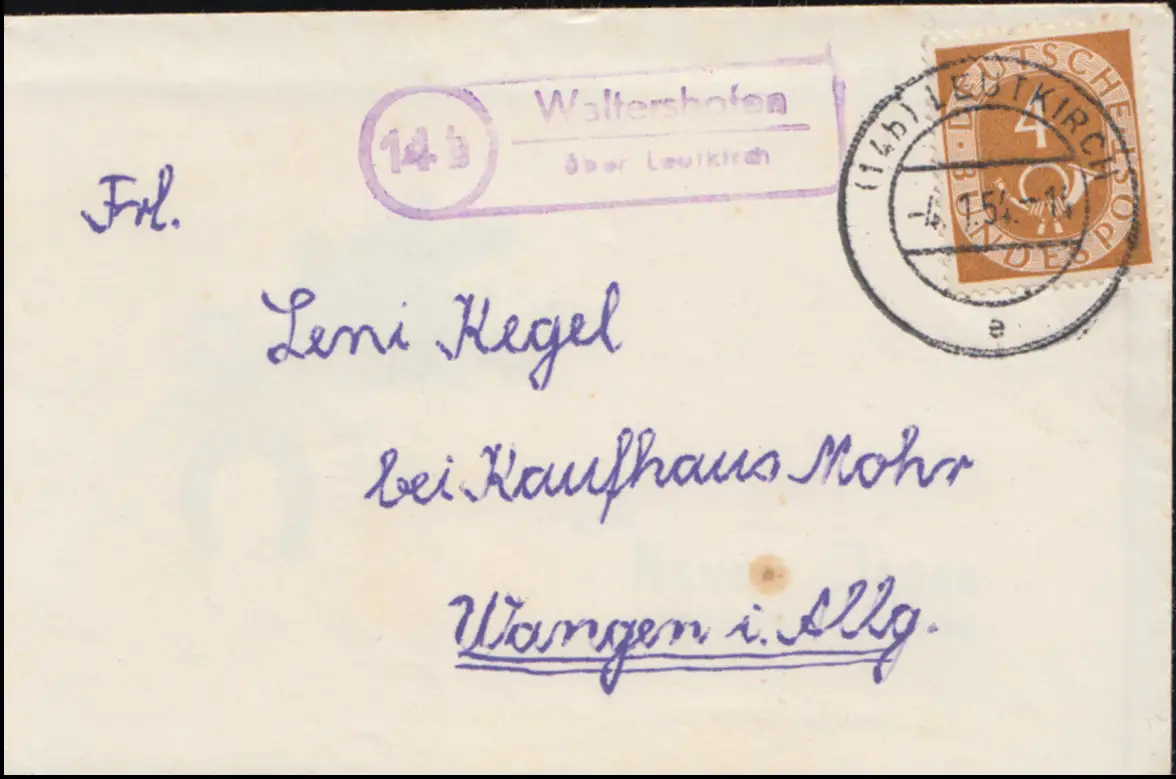 14b
Waltershofen
über Leutkirch
DEUTSCHE BUNDESPOST
4
(14b) LEUTKIRCH
1.54.
a
Frl.
Leni Kegel
bei Kaufhaus Mohr
Wangen i. Allg.